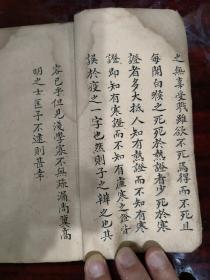 之無辜受戮雖欲不死焉得而不死且
每閱白喉之死死於熱證者少死於寒
證者多大抵人知有熱證而不知有寒
證即知有寒證而不知有虛寒之證故
誤於疫之一字也然則予之辨也其
容已乎但見淺學寡不無疏漏尚冀高
明之士匡予不逮則甚幸